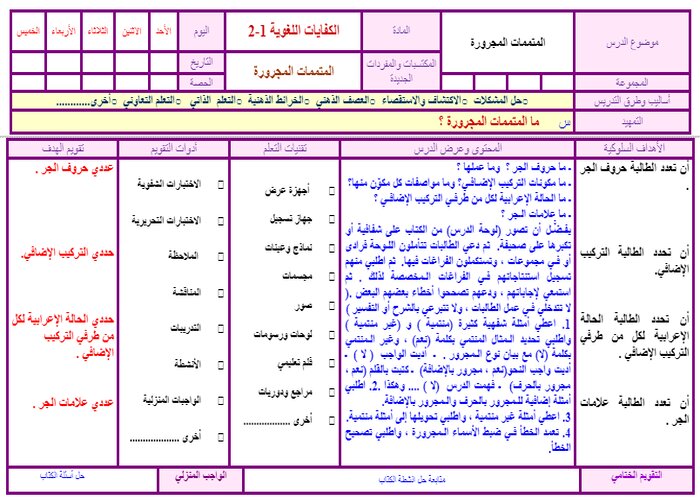 موضوع الدرس
المتممات المجرورة
المادة
الكفايات اللغوية 1-2
اليوم
الأحد
الاثنين
الثلاثاء
الأربعاء
الخميس
المكتسبات والمفردات الجديدة
المتممات المجرورة
التاريخ
المجموعة
الحصة
أساليب وطرق التدريس
○حل المشكلات ○الاكتشاف والاستقصاء ○العصف الذهني ○الخرائط الذهنية ○التعلم الذاتي ○التعلم التعاوني ○أخرى............
التمهيد
س ما المتممات المجرورة ؟
الأهداف السلوكية
المحتوى وعرض الدرس
تقنيات التعلم
أدوات التقويم
تقويم الهدف
أن تعدد الطالبة حروف الجر .
أن تحدد الطالبة التركيب الإضافي.
أن تحدد الطالبة الحالة الإعرابية لكل من طرفي التركيب الإضافي .
أن تعدد الطالبة علامات الجر .
ـ ما حروف الجر ؟ وما عملها ؟
ـ ما مكونات التركيب الإضافي؟ وما مواصفات كل مكوّن منها؟
ـ ما الحالة الإعرابية لكل من طرفي التركيب الإضافي ؟
ـ ما علامات الجر ؟
يفضّل أن تصور (لوحة الدرس) من الكتاب على شفافية أو
تكبرها على صحيفة. ثم دعي الطالبات تتأملون اللوحة فرادى
أو في مجموعات ، وتستكملون الفراغات فيها. ثم اطلبي منهم
تسجيل استنتاجاتهم في الفراغات المخصصة لذلك . ثم
استمعي لإجاباتهم ، ودعهم تصححوا أخطاء بعضهم البعض .(
لا تتدخلي في عمل الطالبات ، ولا تتبرعي بالشرح أو التفسير )
1. اعطي أمثلة شفهية كثيرة (منتمية ) و (غير منتمية )
واطلبي تحديد المثال المنتمي بكلمة (نعم) ، وغير المنتمي
بكلمة (لا) مع بيان نوع المجرور . . - أديت الواجب ( لا ) -
أديت واجب النحو(نعم ، مجرور بالإضافة) - كتبت بالقلم (نعم ،
مجرور بالحرف) - فهمت الدرس (لا ) .... وهكذا .2. اطلبي
أمثلة إضافية للمجرور بالحرف والمجرور بالإضافة.
3. اعطي أمثلة غير منتمية ، واطلبي تحويلها إلى أمثلة منتمية.
4. تعمد الخطأ في ضبط الأسماء المجرورة ، واطلبي تصحيح
الخطأ.
أجهزة عرض
جهاز تسجيل
نماذج وعينات
مجسمات
صور
لوحات ورسومات
فلم تعليمي
مراجع ودوريات
أخرى ..................
الاختبارات الشفوية
الاختبارات التحريرية
الملاحظة
المناقشة
التدريبات
الأنشطة
الواجبات المنزلية
أخرى ..................
عددي حروف الجر .
حددي التركيب الإضافي.
حددي الحالة الإعرابية لكل من طرفي التركيب الإضافي .
عددي علامات الجر .
التقويم الختامي
متابعة حل انشطة الكتاب
الواجب المنزلي
حل أسئلة الكتاب